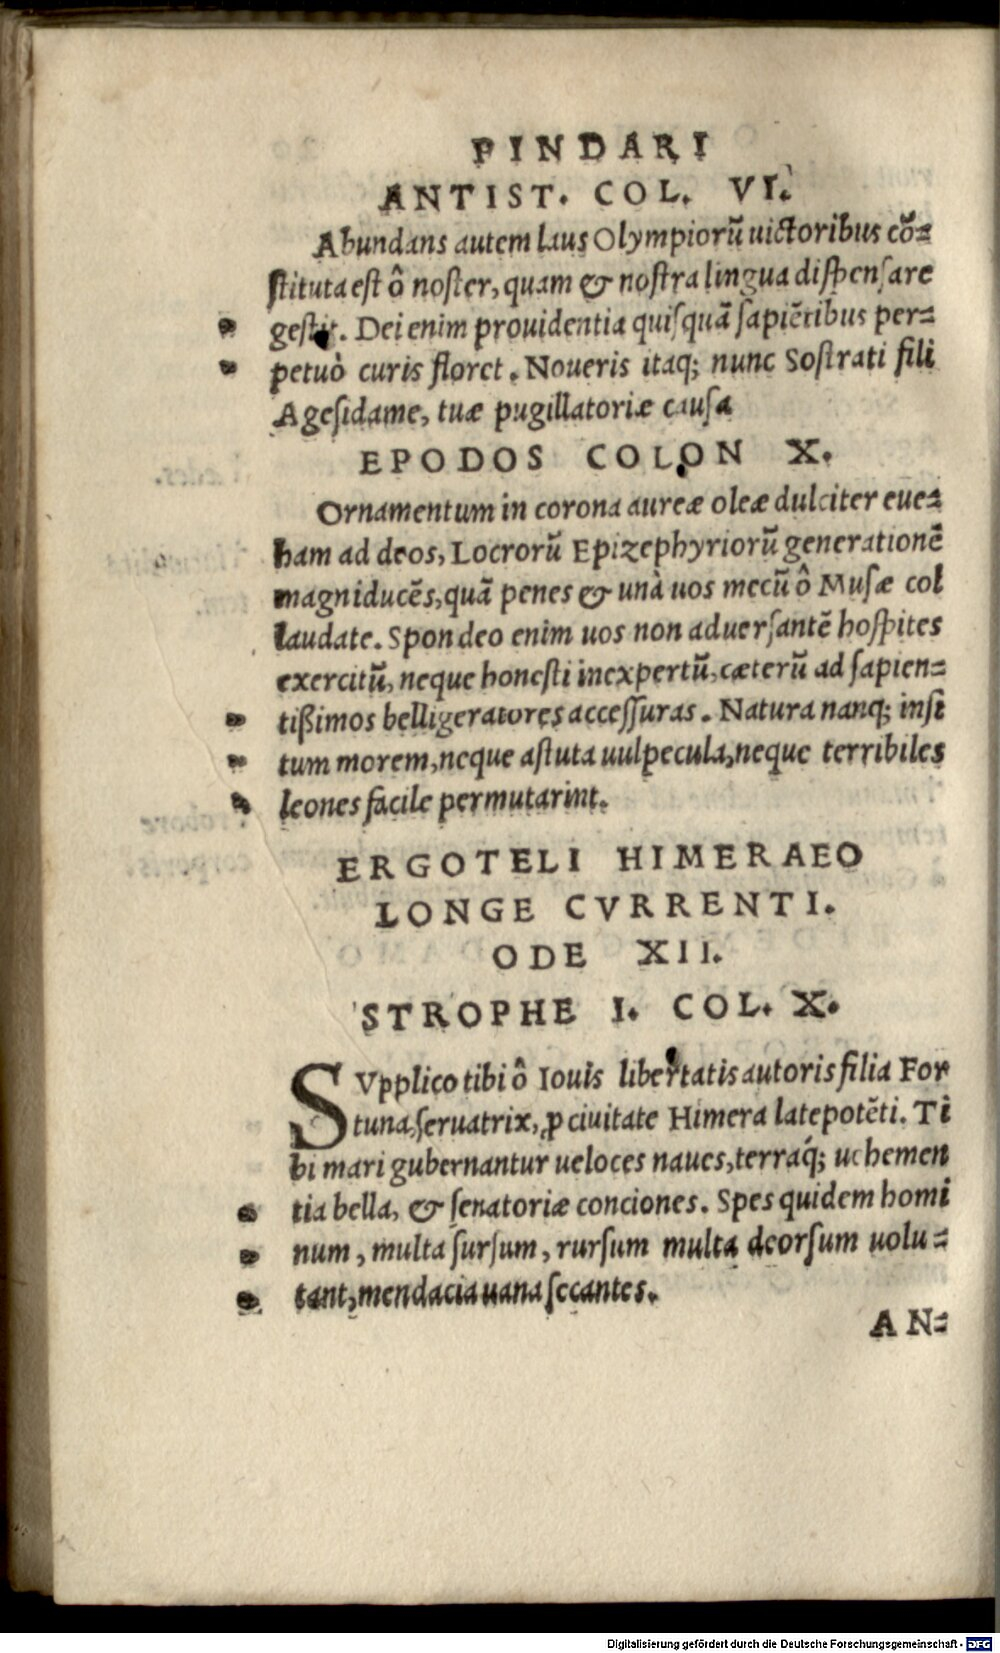 PINDARI
ANTIST. COL. VI.
Abundans autem laus Olympiorũ uictoribus cõ-
stituta est ô noster, quam & nostra lingua dispensare
gestit. Dei enim prouidentia quisquã sapiẽtibus per-
petuò curis floret. Noueris itaq; nunc Sostrati fili
Agesidame, tuæ pugillatoriæ causa
EPODOS COLON X.
Ornamentum in corona aureæ oleæ dulciter eue-
ham ad deos, Locrorũ Epizephyriorũ generationẽ
magniducẽs, quã penes & unà uos mecũ ô Musæ col
laudate. Spondeo enim uos non aduersantẽ hospites
exercitũ, neque honesti inexpertũ, cæterũ ad sapien-
tißimos belligeratores accessuras. Natura nanq; insi
tum morem, neque astuta uulpecula, neque terribiles
leones facile permutarint.
ERGOTELI HIMERAEO
LONGE CVRRENTI.
ODE XII.
STROPHE I. COL. X.
SVpplico tibi ô Iouis libertatis autoris filia For
tuna, seruatrix, ꝓ ciuitate Himera latepotẽti. Ti
bi mari gubernantur ueloces naues, terraq́; uehemen
tia bella, & senatoriæ conciones. Spes quidem homi
num, multa sursum, rursum multa deorsum uolu-
tant, mendacia uana secantes.
AN-
Digitalisierung gefördert durch die Deutsche Forschungsgemeinschaft - DFG